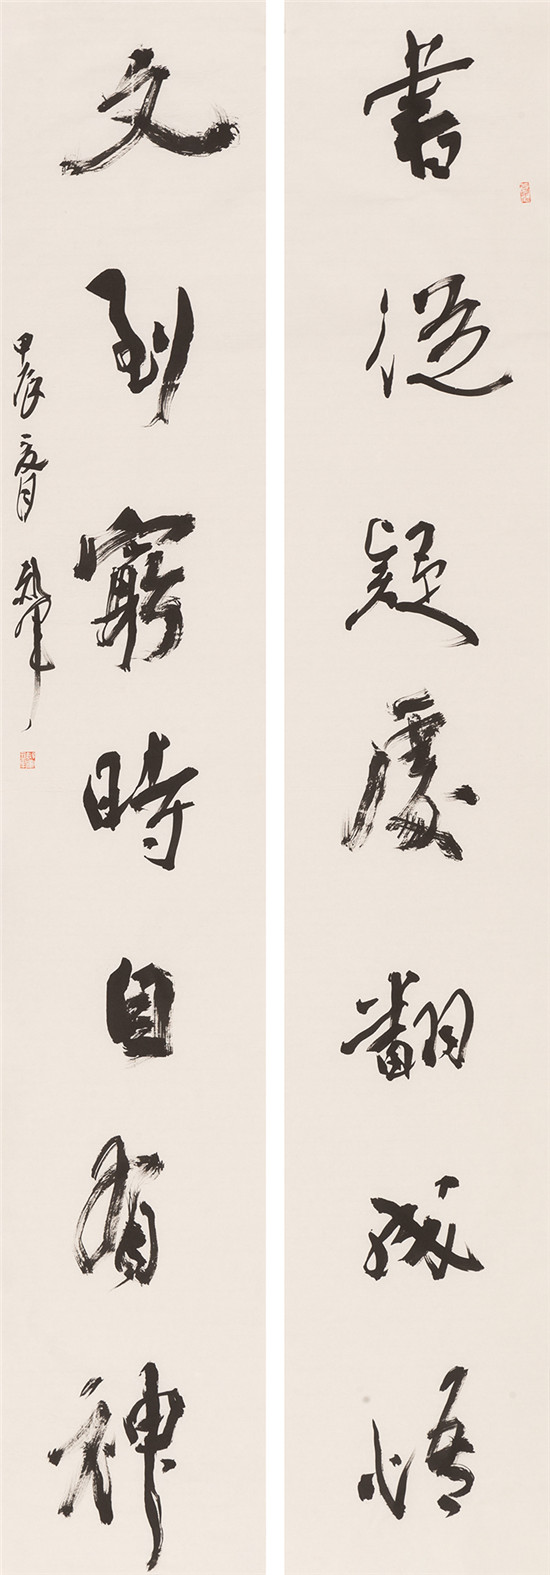 書從疑處翻成悟
文到窮時自有神
甲辰夏月